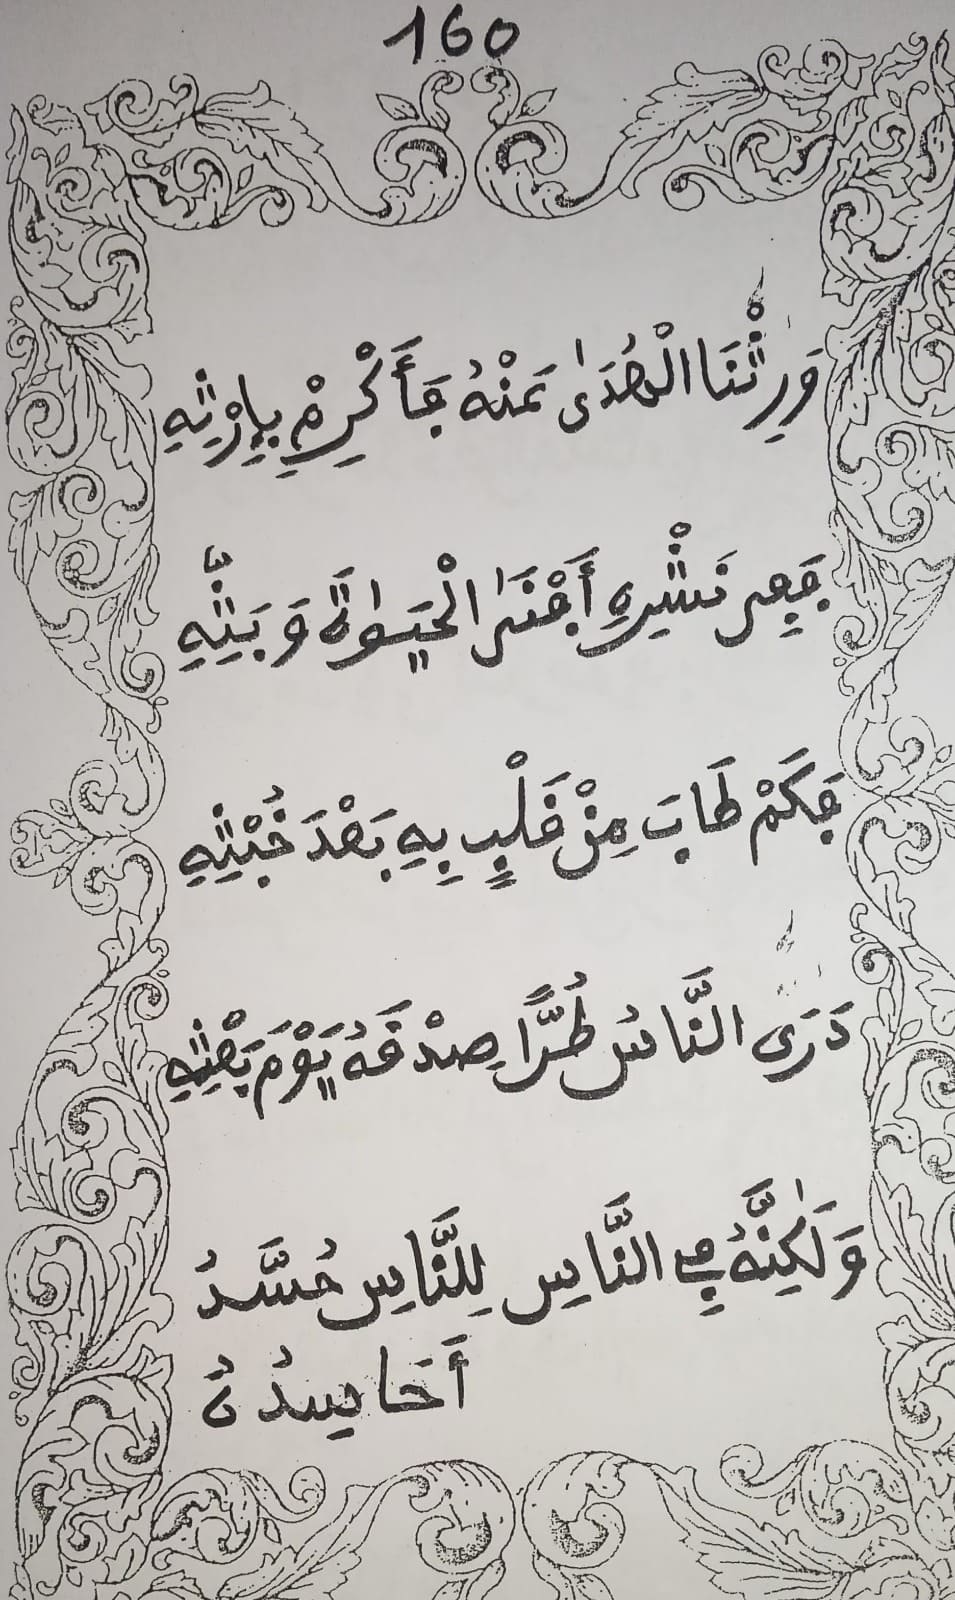 160
وَرِثْنَا الْهُدَىٰ عَنْهُ فَأَكْرِمْ بِإِرْثِهِ
فَفِى نَشْرِهِ أَفْنَى الْحَيَوٰةَ وَبَثِّهِ
فَكَمْ طَابَ مِنْ قَلْبٍ بِهِ بَعْدَ خُبْثِهِ
دَرَى النَّاسُ طُرًّا صِدْقَهُ يَوْمَ بَعْثِهِ
وَلَٰكِنَّهُ فِي النَّاسِ لِلنَّاسِ حُسَّدُ
أَحَاسِدُ